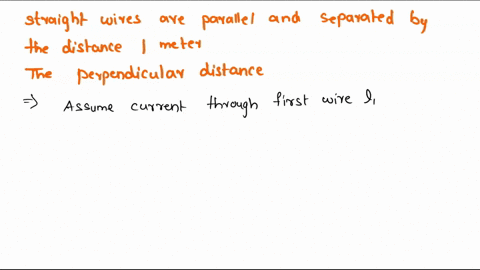 straight wires are parallel and separated by
the distance 1 meter
The perpendicular distance
⇒ Assume current through first wire I₁